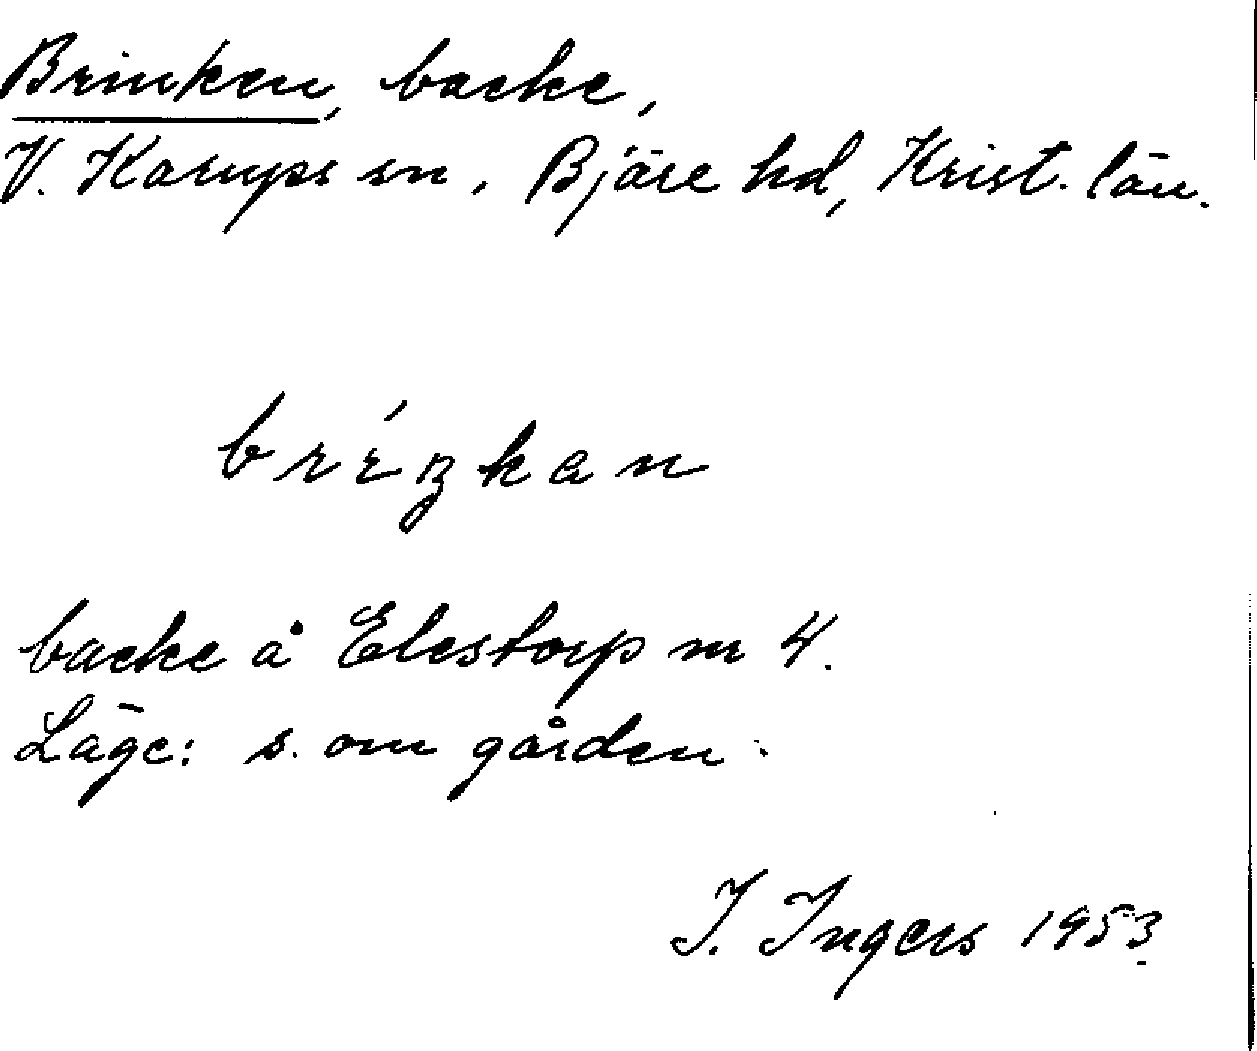 Brinken, backe,
V. Karups sn, Bjäre hd, Krist. län.
bríŋkan
backe å Elestorp nr 4.
Läge: s. om gården.
I. Ingers 1953.